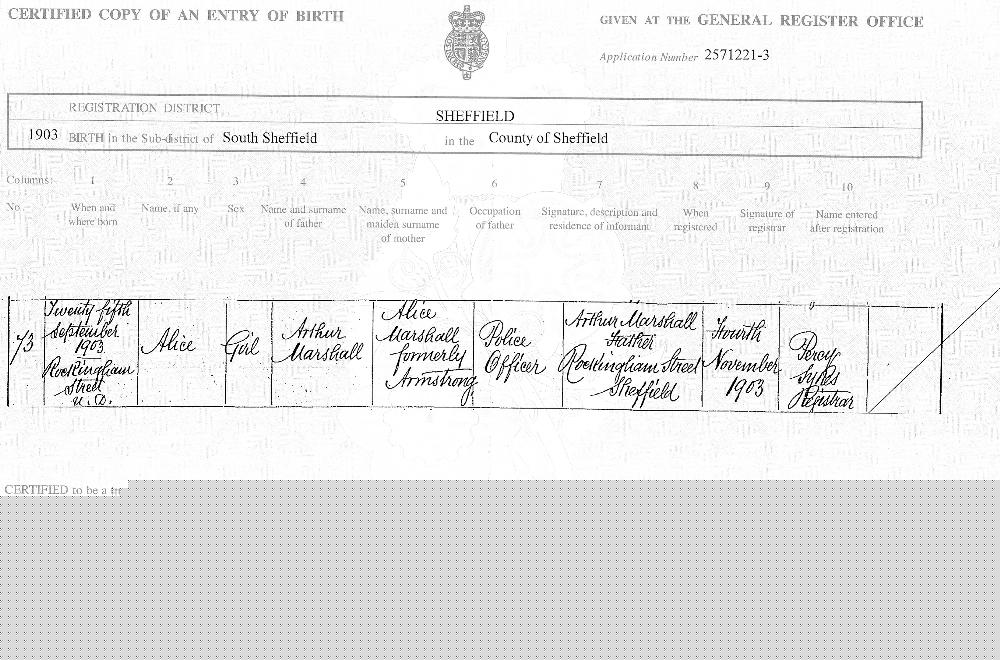 CERTIFIED COPY OF AN ENTRY OF BIRTH
GIVEN AT THE GENERAL REGISTER OFFICE
Application Number 2571221-3
REGISTRATION DISTRICT
SHEFFIELD
1903 BIRTH in the Sub-district of South Sheffield in the County of Sheffield
Columns:- 1 2 3 4 5 6 7 8 9 10
No.
When and
where born
Name, if any
Sex
Name and surname
of father
Name, surname and
maiden surname
of mother
Occupation
of father
Signature, description and
residence of informant
When
registered
Signature of
registrar
Name entered
after registration
73
Twenty fifth
September
1903
Rockingham
Street
U. D.
Alice
Girl
Arthur
Marshall
Alice
Marshall
formerly
Armstrong
Police
Officer
Arthur Marshall
Father
Rockingham Street
Sheffield
Fourth
November
1903
Percy
Sykes
Registrar
CERTIFIED to be a